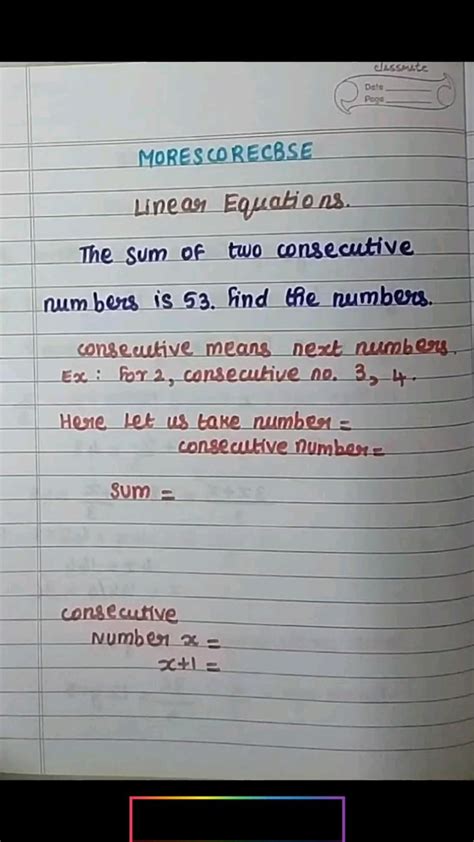 classmate
Date
Page
MORESCORECBSE
Linear Equations.
The sum of two consecutive
numbers is 53. Find the numbers.
consecutive means next numbers.
Ex: For 2, consecutive no. 3, 4.
Here Let us take number =
consecutive number =
Sum =
consecutive
Number x =
x+1 =